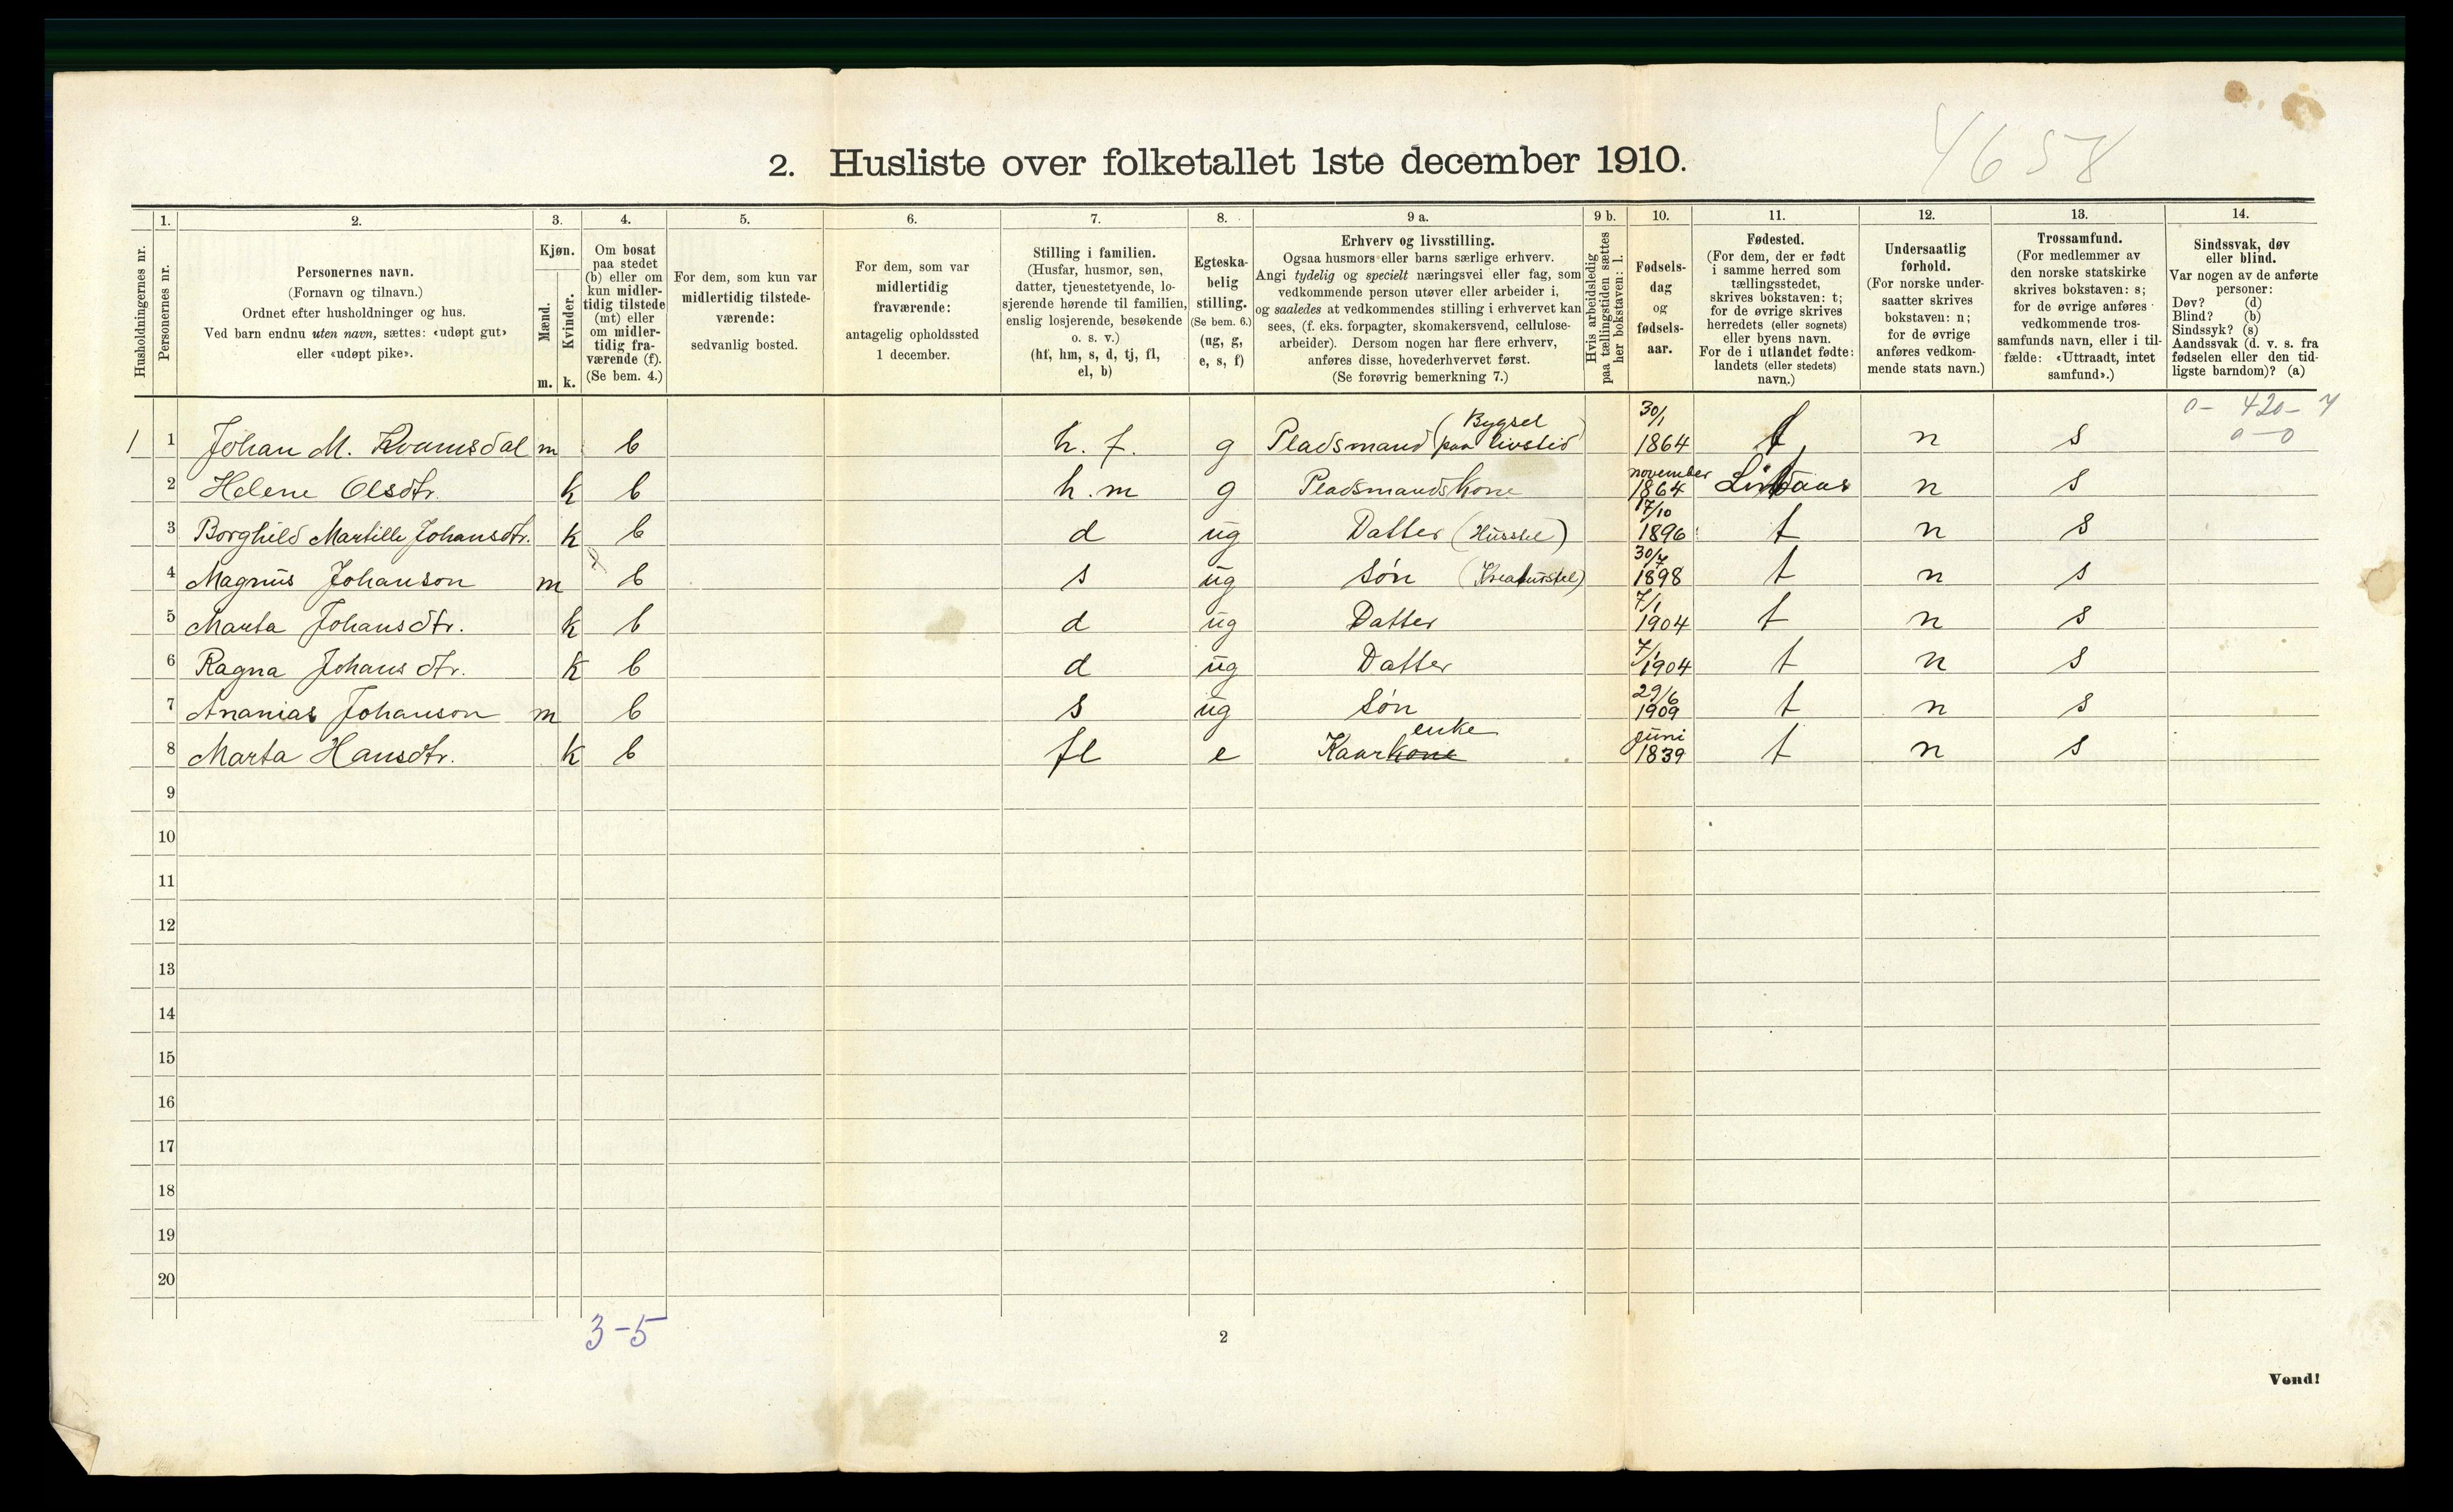 4658
2. Husliste over folketallet 1ste december 1910.
Husholdningernes nr.
1.
Personernes nr.
2.
Personernes navn.
(Fornavn og tilnavn.)
Ordnet efter husholdninger og hus.
Ved barn endnu uten navn, sættes: «udøpt gut»
eller «udøpt pike».
3.
Kjøn.
Mænd.
Kvinder.
m. k.
4.
Om bosat
paa stedet
(b) eller om
kun midler-
tidig tilstede
(mt) eller
om midler-
tidig fra-
værende (f).
(Se bem. 4.)
5.
For dem, som kun var
midlertidig tilstede-
værende:
sedvanlig bosted.
6.
For dem, som var
midlertidig
fraværende:
antagelig opholdssted
1 december.
7.
Stilling i familien.
(Husfar, husmor, søn,
datter, tjenestetyende, lo-
sjerende hørende til familien,
enslig losjerende, besøkende
o. s. v.)
(hf, hm, s, d, tj, fl,
el, b)
8.
Egteska-
belig
stilling.
(Se bem. 6.)
(ug, g,
e, s, f)
9 a.
Erhverv og livsstilling.
Ogsaa husmors eller barns særlige erhverv.
Angi tydelig og specielt næringsvei eller fag, som
vedkommende person utøver eller arbeider i,
og saaledes at vedkommendes stilling i erhvervet kan
sees, (f. eks. forpagter, skomakersvend, cellulose-
arbeider). Dersom nogen har flere erhverv,
anføres disse, hovederhvervet først.
(Se forøvrig bemerkning 7.)
9 b.
Hvis arbeidsledig
paa tællingstiden sættes
her bokstaven: l.
10.
Fødsels-
dag
og
fødsels-
aar.
11.
Fødested.
(For dem, der er født
i samme herred som
tællingsstedet,
skrives bokstaven: t;
for de øvrige skrives
herredets (eller sognets)
eller byens navn.
For de i utlandet fødte:
landets (eller stedets)
navn.)
12.
Undersaatlig
forhold.
(For norske under-
saatter skrives
bokstaven: n;
for de øvrige
anføres vedkom-
mende stats navn.)
13.
Trossamfund.
(For medlemmer av
den norske statskirke
skrives bokstaven: s;
for de øvrige anføres
vedkommende tros-
samfunds navn, eller i til-
fælde: «Uttraadt, intet
samfund».)
14.
Sindssvak, døv
eller blind.
Var nogen av de anførte
personer:
Døv? (d)
Blind? (b)
Sindssyk? (s)
Aandssvak (d. v. s. fra
fødselen eller den tid-
ligste barndom)? (a)
0- 420- 4
0-0
1 1 Johan M. Kvamsdal m b h. f. g Pladsmand (Bygsel paa livstid) 30/1 1864 t n s
2 Helene Olsdtr. k b h.m g Pladsmandskone november 1864 Lindaas n s
3 Borghild Martille Johansdtr. k b d ug Datter (Husstel) 17/10 1896 t n s
4 Magnus Johanson m b s ug Søn (Kreaturstel) 30/7 1898 t n s
5 Marta Johansdtr. k b d ug Datter 7/1 1904 t n s
6 Ragna Johansdtr. k b d ug Datter 7/1 1904 t n s
7 Ananias Johanson m b s ug Søn 29/6 1909 t n s
8 Marta Hansdtr. k b fl e Kaarkone enke juni 1839 t n s
9
10
11
12
13
14
15
16
17
18
19
20
3-5
2
Vend!